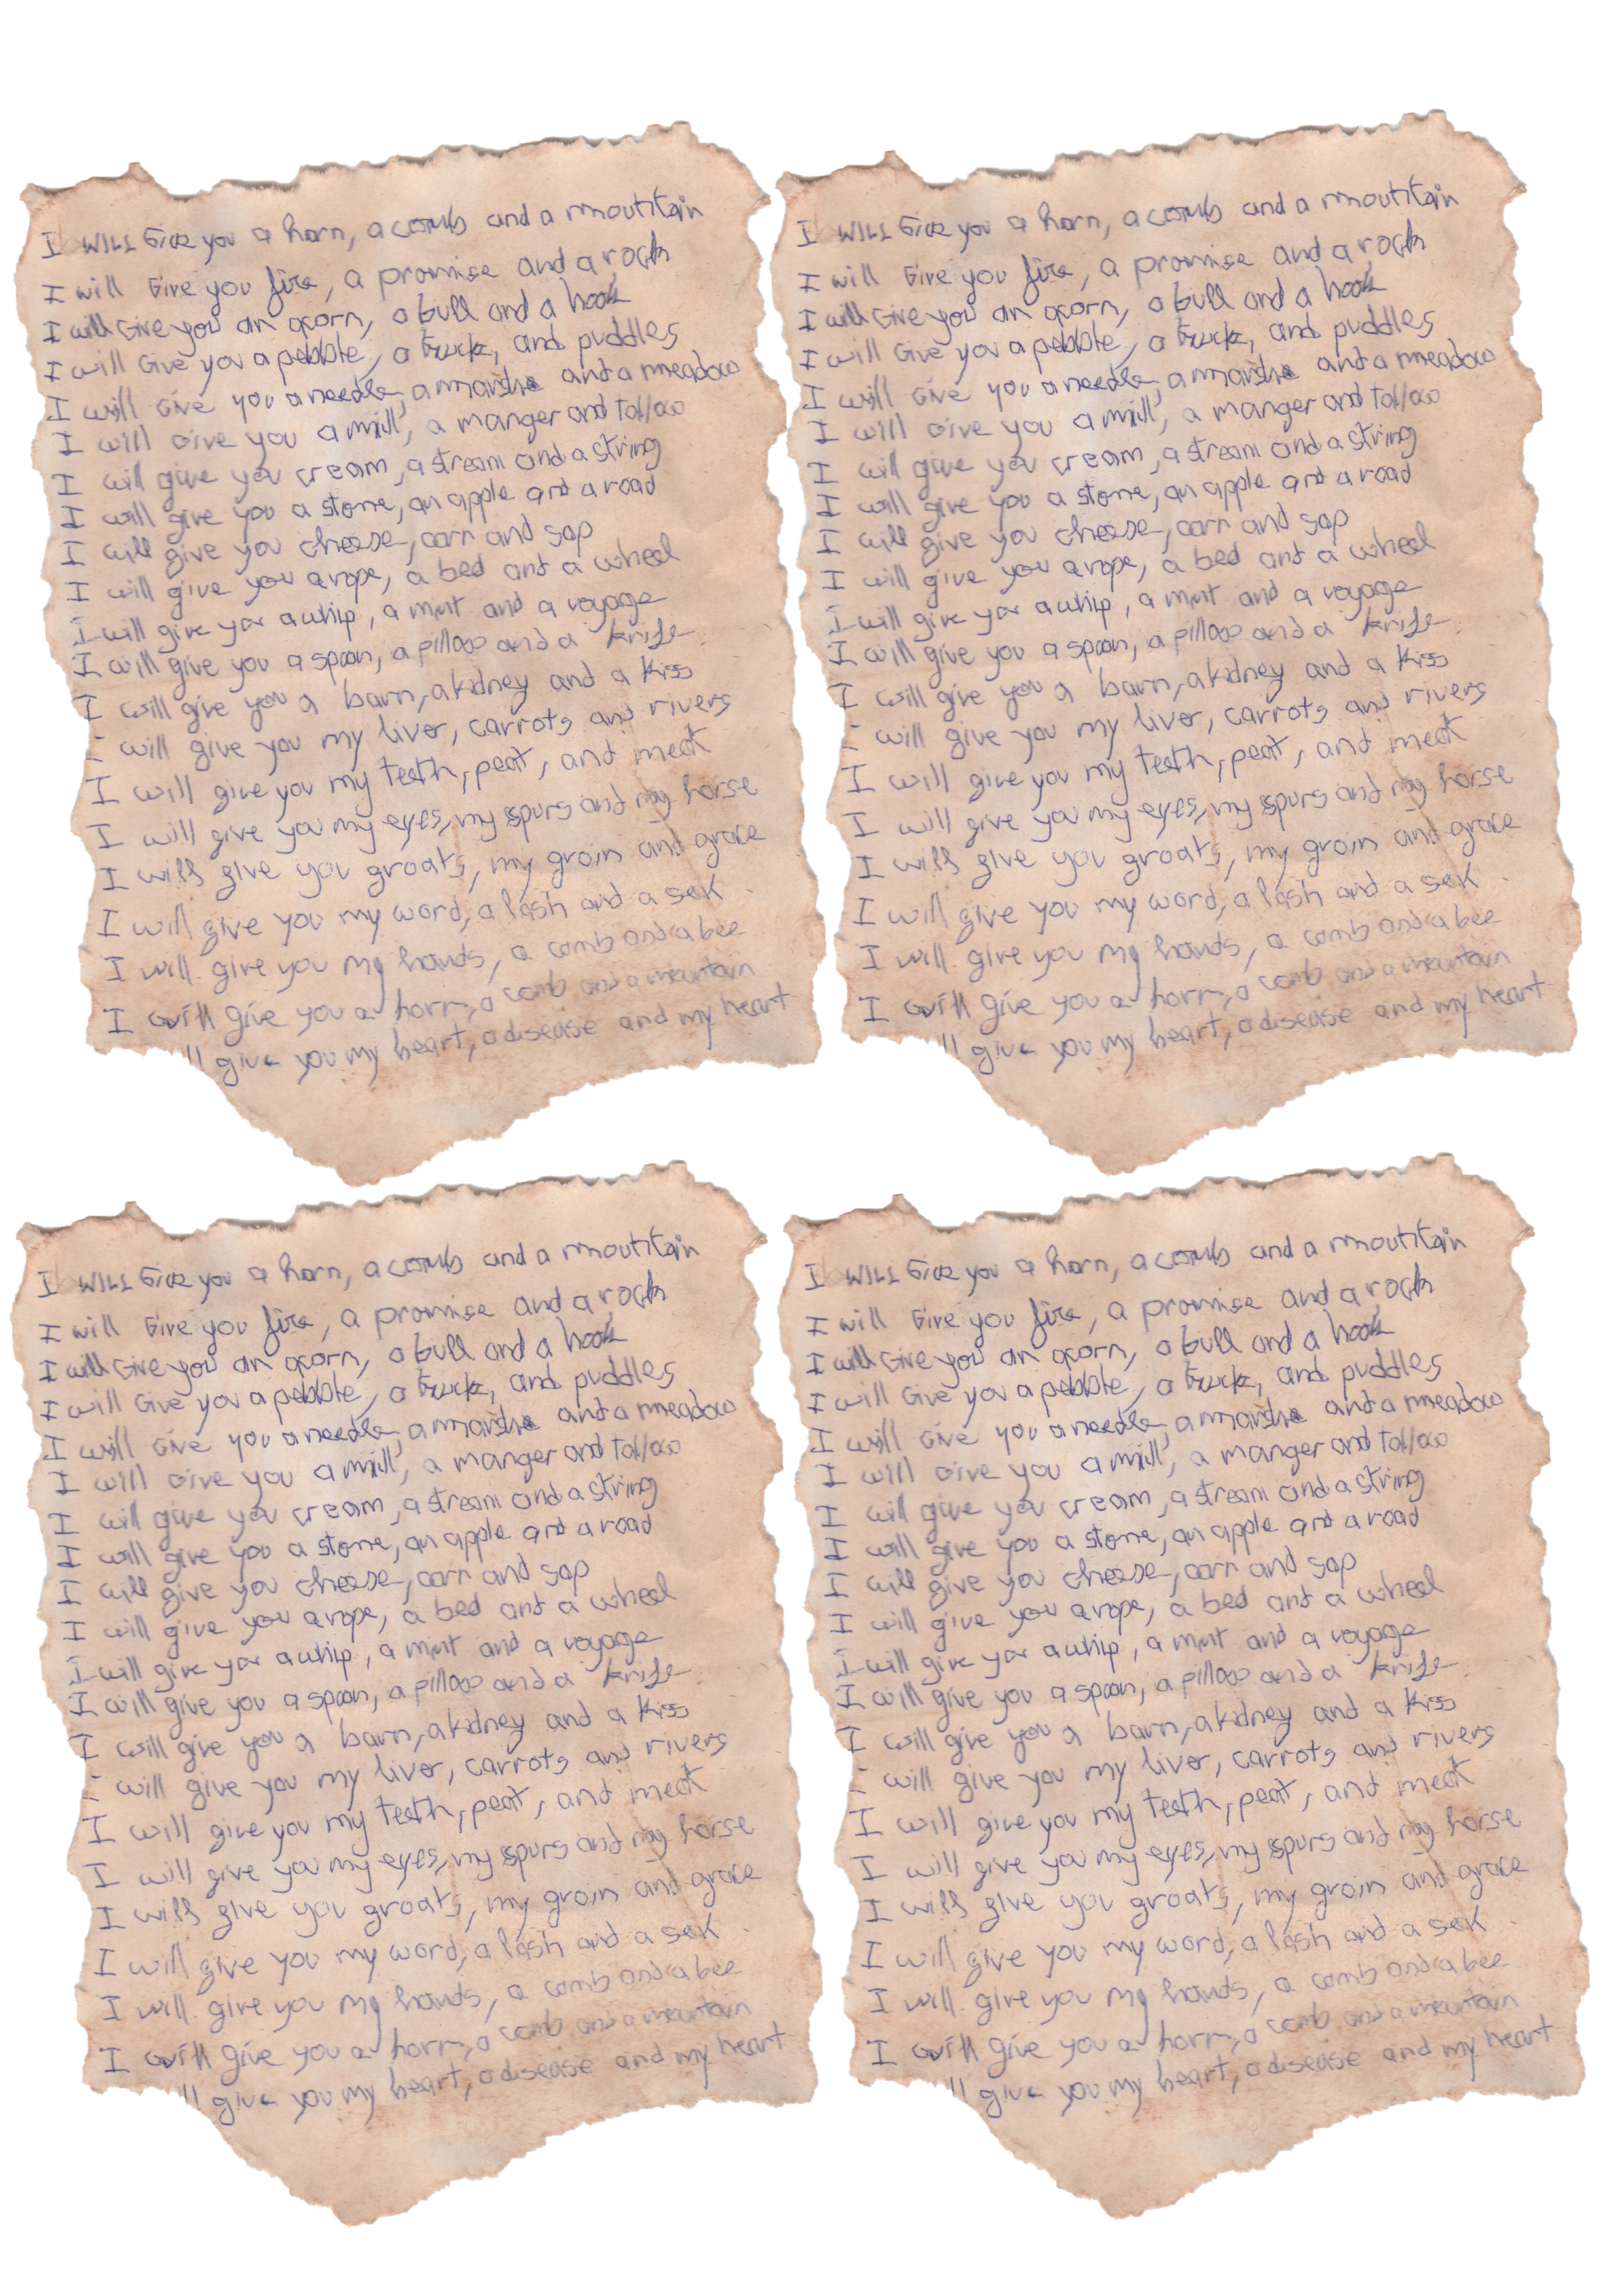 I WILL Give you a horn, a comb and a moutitain
I will Give you fire, a promise and a rock
I will Give you an acorn, a bull and a hook
I will Give you a pebble, a truck, and puddles
I will Give you a needle, a marsh and a meadow
I will Give you a mill, a manger and tallow
I will give you cream, a stream and a string
I will give you a stone, an apple and a road
I will give you cheese, corn and sap
I will give you a rope, a bed and a wheel
I will give you a whip, a mint and a voyage
I will give you a spoon, a pillow and a knife
I will give you a barn, a kidney and a kiss
I will give you my liver, carrots and rivers
I will give you my teeth, peat, and meat
I will give you my eyes, my spurs and my horse
I will give you groats, my groin and grace
I will give you my word, a lash and a sek
I will give you my hands, a comb and a bee
I will give you a horn, a comb and a mountain
ll give you my heart, a disease and my heart
I WILL Give you a horn, a comb and a moutitain
I will Give you fire, a promise and a rock
I will Give you an acorn, a bull and a hook
I will Give you a pebble, a truck, and puddles
I will Give you a needle, a marsh and a meadow
I will Give you a mill, a manger and tallow
I will give you cream, a stream and a string
I will give you a stone, an apple and a road
I will give you cheese, corn and sap
I will give you a rope, a bed and a wheel
I will give you a whip, a mint and a voyage
I will give you a spoon, a pillow and a knife
I will give you a barn, a kidney and a kiss
I will give you my liver, carrots and rivers
I will give you my teeth, peat, and meat
I will give you my eyes, my spurs and my horse
I will give you groats, my groin and grace
I will give you my word, a lash and a sek
I will give you my hands, a comb and a bee
I will give you a horn, a comb and a mountain
ll give you my heart, a disease and my heart
I WILL Give you a horn, a comb and a moutitain
I will Give you fire, a promise and a rock
I will Give you an acorn, a bull and a hook
I will Give you a pebble, a truck, and puddles
I will Give you a needle, a marsh and a meadow
I will Give you a mill, a manger and tallow
I will give you cream, a stream and a string
I will give you a stone, an apple and a road
I will give you cheese, corn and sap
I will give you a rope, a bed and a wheel
I will give you a whip, a mint and a voyage
I will give you a spoon, a pillow and a knife
I will give you a barn, a kidney and a kiss
I will give you my liver, carrots and rivers
I will give you my teeth, peat, and meat
I will give you my eyes, my spurs and my horse
I will give you groats, my groin and grace
I will give you my word, a lash and a sek
I will give you my hands, a comb and a bee
I will give you a horn, a comb and a mountain
ll give you my heart, a disease and my heart
I WILL Give you a horn, a comb and a moutitain
I will Give you fire, a promise and a rock
I will Give you an acorn, a bull and a hook
I will Give you a pebble, a truck, and puddles
I will Give you a needle, a marsh and a meadow
I will Give you a mill, a manger and tallow
I will give you cream, a stream and a string
I will give you a stone, an apple and a road
I will give you cheese, corn and sap
I will give you a rope, a bed and a wheel
I will give you a whip, a mint and a voyage
I will give you a spoon, a pillow and a knife
I will give you a barn, a kidney and a kiss
I will give you my liver, carrots and rivers
I will give you my teeth, peat, and meat
I will give you my eyes, my spurs and my horse
I will give you groats, my groin and grace
I will give you my word, a lash and a sek
I will give you my hands, a comb and a bee
I will give you a horn, a comb and a mountain
ll give you my heart, a disease and my heart